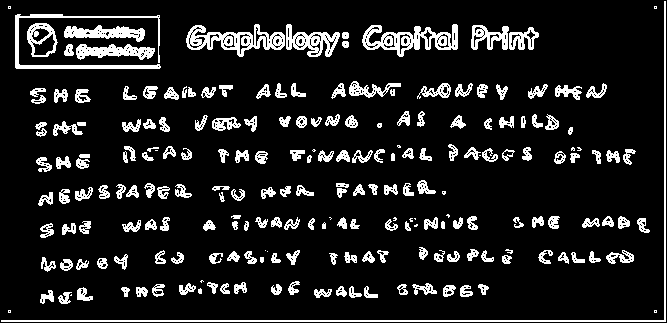 Handwriting
& Graphology
Graphology: Capital Print
SHE LEARNT ALL ABOUT MONEY WHEN
SHE WAS VERY YOUNG. AS A CHILD,
SHE READ THE FINANCIAL PAGES OF THE
NEWSPAPER TO HER FATHER.
SHE WAS A FINANCIAL GENIUS SHE MADE
MONEY SO EASILY THAT PEOPLE CALLED
HER THE WITCH OF WALL STREET